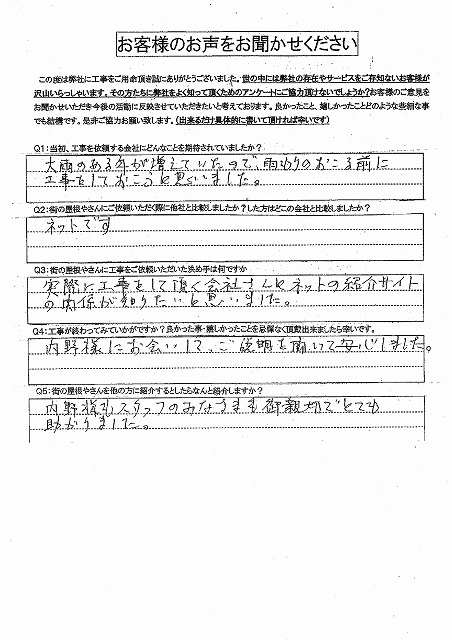 お客様のお声をお聞かせください
この度は弊社に工事をご用命頂き誠にありがとうございました。世の中には弊社の存在やサービスをご存知ないお客様が
沢山いらっしゃいます。その方たちに弊社をよく知って頂くためのアンケートにご協力頂けないでしょうか?お客様のご意見を
お聞かせいただき今後の活動に反映させていただきたいと考えております。良かったこと、嬉しかったことどのような些細な事
でも結構です。是非ご協力お願い致します。(出来るだけ具体的に書いて頂ければ幸いです)
Q1:当初、工事を依頼する会社にどんなことを期待されていましたか?
大雨のある年が増えていたので、雨もりのおこる前に
工事をしておこうと思いました。
Q2:街の屋根やさんにご依頼いただく際に他社と比較しましたか?した方はどこの会社と比較しましたか?
ネットです
Q3:街の屋根やさんに工事をご依頼いただいた決め手は何ですか
実際に工事をして頂く会社さんとネットの紹介サイト
の関係が知りたいと思いました。
Q4:工事が終わってみていかがですか?良かった事・嬉しかったことを忌憚なく頂戴出来ましたら幸いです。
内野様にお会いして、ご説明を聞いて安心しました。
Q5:街の屋根やさんを他の方に紹介するとしたらなんと紹介しますか?
内野様もスタッフのみなさまも御親切でとても
助かりました。